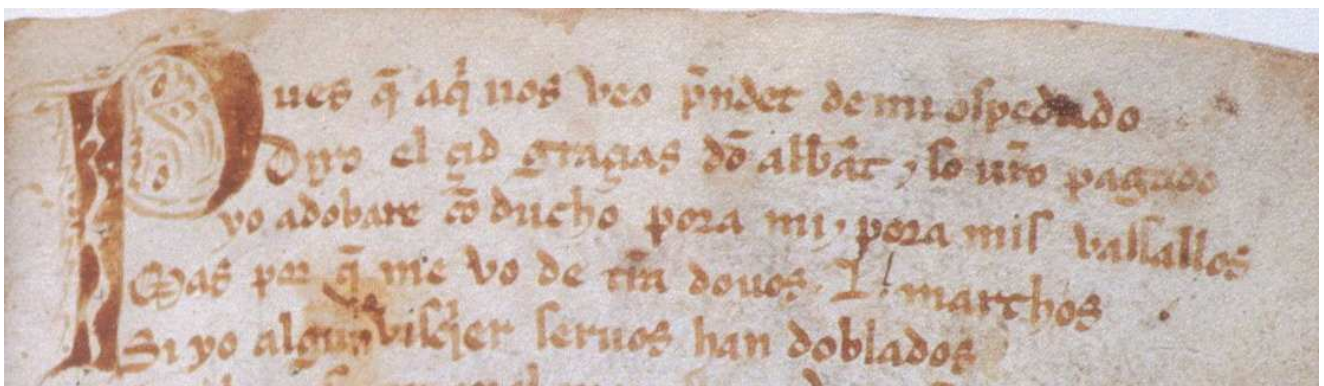 Pues q̃ aq̃ uos veo p̃ndet de mi ospedado
Dixo el çid graçias dõ albãt ⁊ so ur̃o pagado
yo adobare cõ ducho pora mi ⁊ pora mis vassallos
Mas por q̃ me vo de tr̃ra douos .L. marchos
Si yo algun visq̃er seruos han doblados